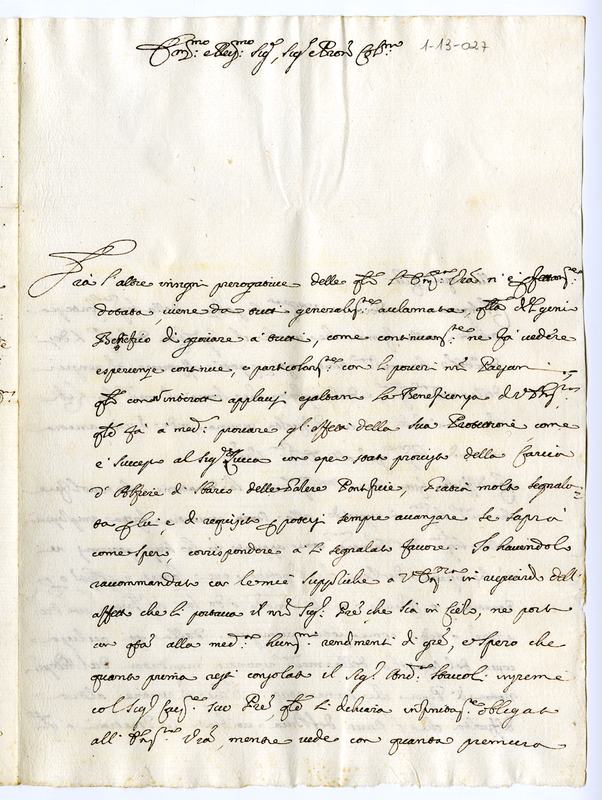 Em.mo e Rev.mo Sig.r, Sig.r e Pron Col.mo 1-13-027
Frà l'altre insigni prerogative delle q.li l'Em.za Vrã n'è
dotata, viene da tutti generalm.te acclamata, q.lla del geni
Benefico di giovare à tutti, come continuam.te ne fà vedere
esperienze continue, e particolarm.te con li poveri nri Paesani
q.li con applausi esaltano la Beneficenza di V. Em.za
q.le fà à med.i provare gl'effetti della sua Protettione come
è successo al Sig.r Zucca con esser stato provisto della Carica
d'Alfiere di sbarco delle Galere Pontificie, Gratia molto segnala-
ta p lui, e di requisito p potersi sempre avanzare se saprà
come spero, corrispondere à sì segnalato favore. Io havendolo
raccommandato con le mie suppliche a V. Em.za in riguardo dell'
affetto che li portava il nro Sig.r Pre, che sia in Cielo, ne porto
con q.sta alla med.ma hum.mi rendimenti di gre, e spero che
quanto prima resti consolato il Sig.r And.a insieme
col Sig.r suo Pre, q.le li dichiara infinitam.te obligato
all' Em.za Vrã, mentre vede con quanta premura